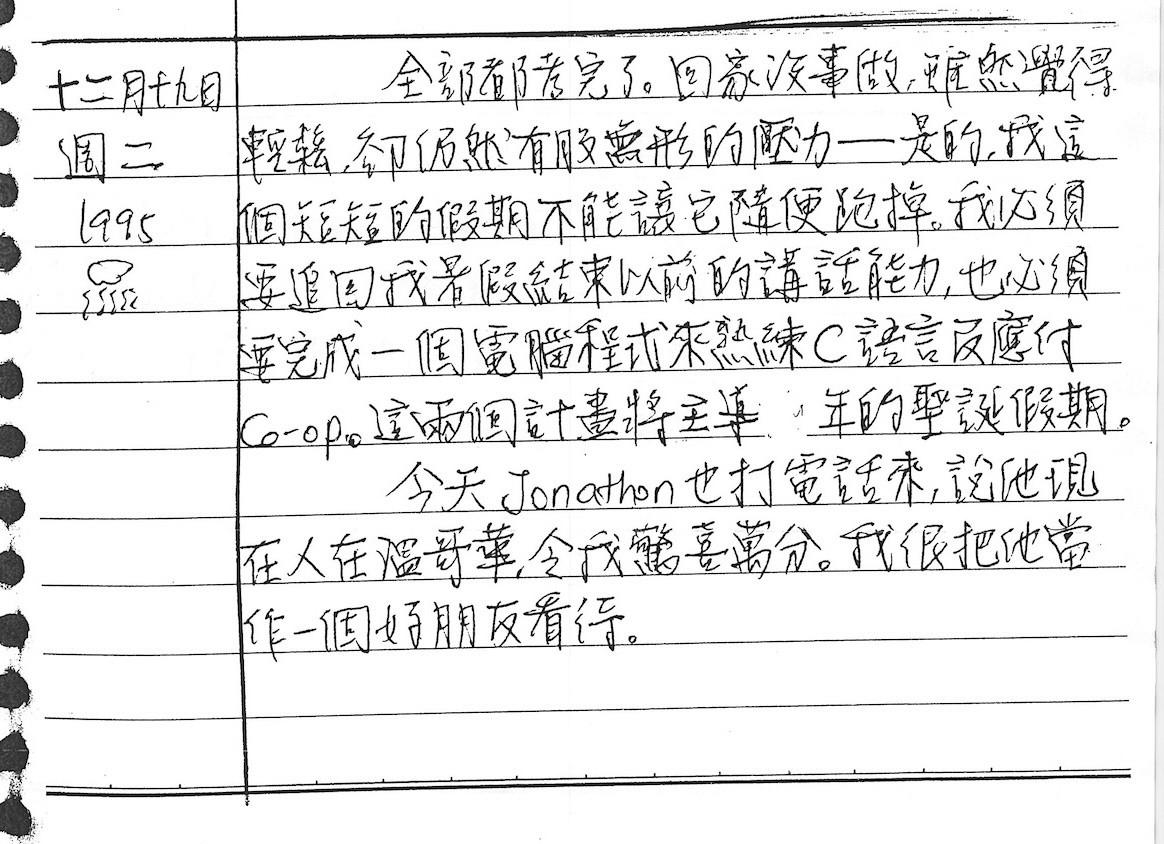 十二月十九日
週二
1995
全部都考完了。回家沒事做,雖然覺得
輕鬆,卻仍然有股無形的壓力——是的,我這
個短短的假期不能讓它隨便跑掉。我必須
要追回我暑假結束以前的講話能力,也必須
要完成一個電腦程式來熟練C語言及應付
Co-op。這兩個計畫將主導 年的聖誕假期。
今天Jonathon也打電話來,說他現
在人在溫哥華,令我驚喜萬分。我很把他當
作一個好朋友看待。